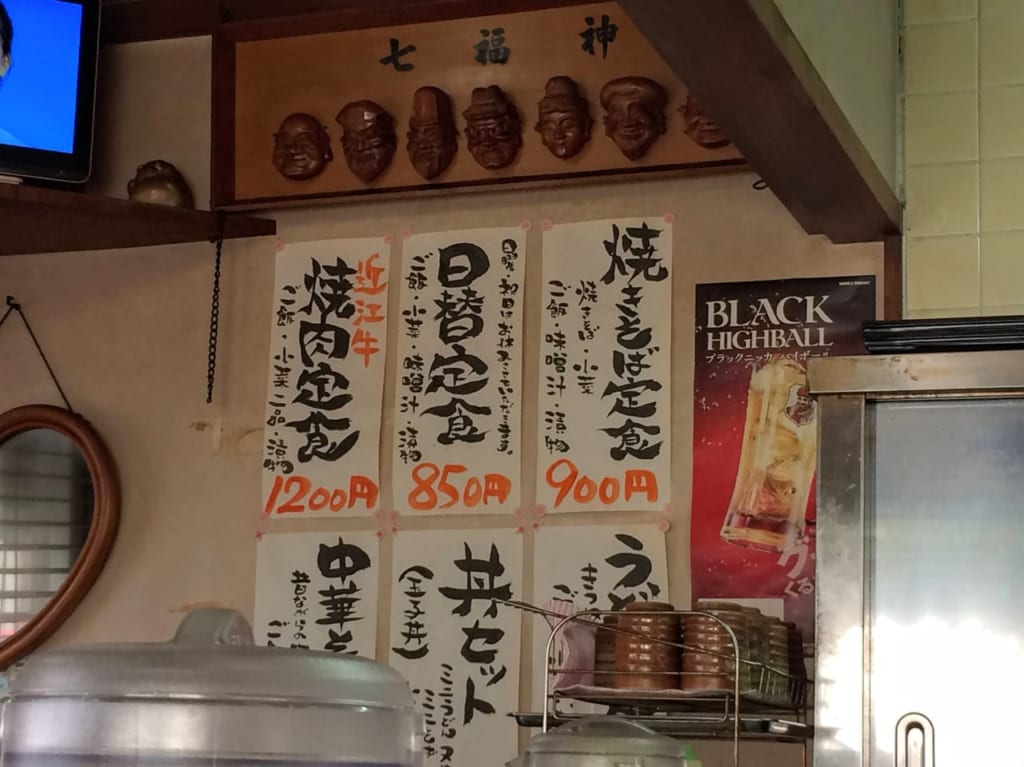 七福神
焼きそば定食
焼きそば・小菜
ご飯・味噌汁・漬物
900円
日曜・祝日はお休みさせていただきます。
日替定食
ご飯・小菜・味噌汁・漬物
850円
近江牛
焼肉定食
ご飯・小菜二品・漬物
1200円
丼セット
(玉子丼)
中華そ
昔ながらの
BLACK
HIGHBALL
ブラックニッカ ハイボール